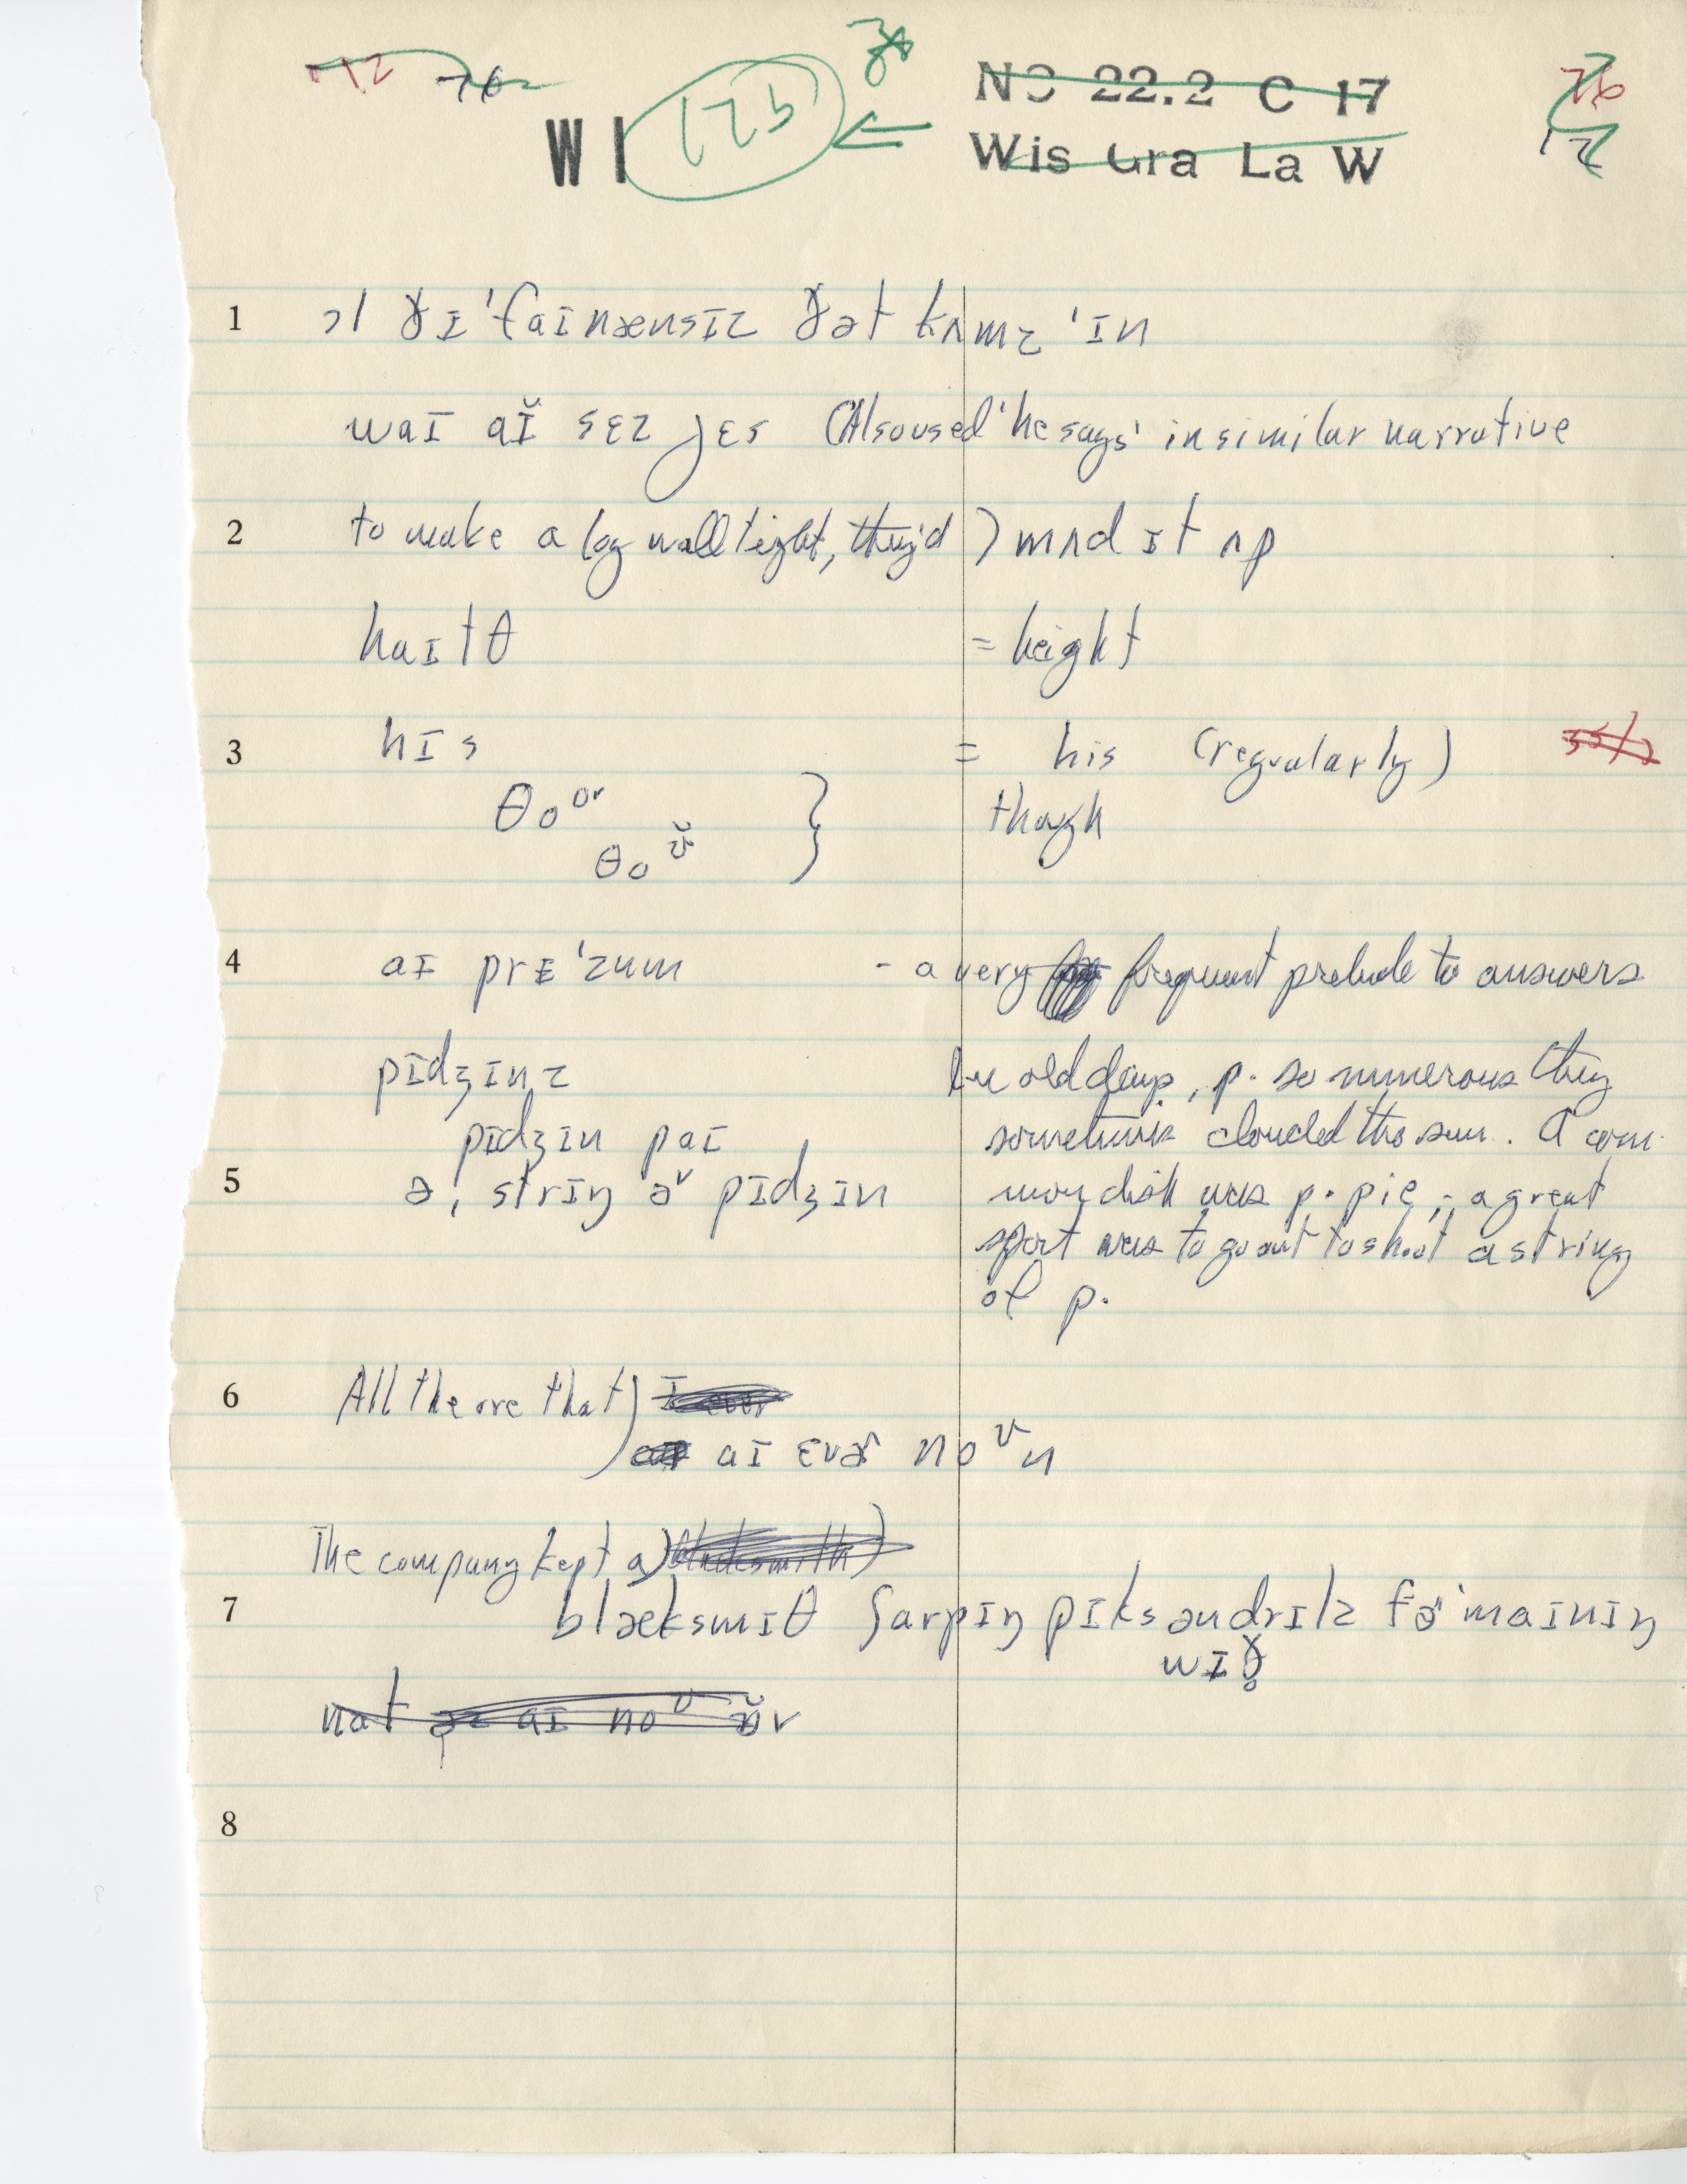 12 76
38
WI 175
NC 22.2 C 17
Wis Gra La W
76
12
1 ɔl ðɪ ˈfaɪnænsɪz ðət kʌmz ˈɪn
waɪ aɪ̆ sɛz jɛs (Also used 'he says' in similar narrative
2 to make a log wall tight, they'd ) mʌd ɪt ʌp
haɪtθ = height
3 hɪs = his (regularly)
θo or } though
θoʊ̆
4 aɪ prɪˈzum - a very frequent prelude to answers
pɪdʒɪnz In old days, p. so numerous they
pɪdʒɪn paɪ sometimes clouded the sun. A com-
5 ə, strɪŋ əv pɪdʒɪn mon dish was p. pie; - a great
sport was to go out to shoot a string
of p.
6 All the ore that ) I ever
aɪ ɛvɚ noʊn
The company kept a) (blacksmith)
7 blæksmɪθ ʃarpɪŋ pɪks ən drɪlz fɚ maɪnɪŋ
wɪð̥
nat əz aɪ noʊ ʊ̆v
8